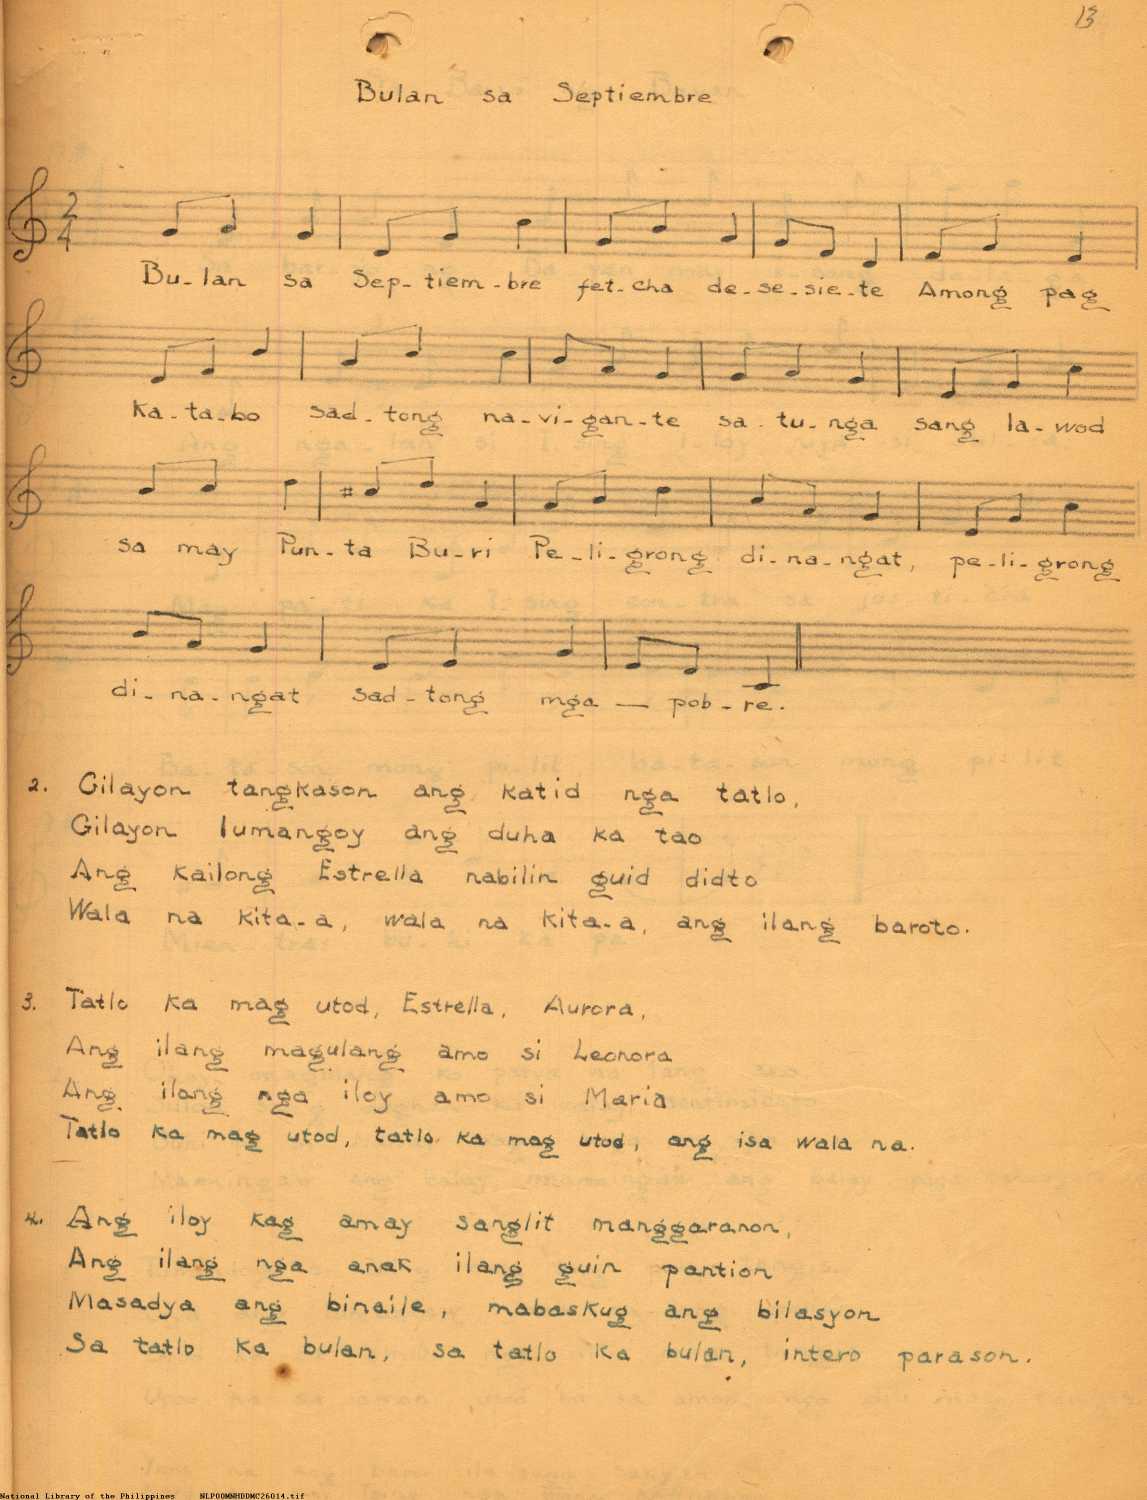 13
Bulan sa Septiembre
2
4
Bu-lan sa Sep-tiem-bre fet-cha de-se-sie-te Among pag
Ka-ta-bo sad-tong na-vi-gan-te sa tu-nga sang la-wod
sa may Pun-ta Bu-ri Pe-li-grong di-na-ngat, pe-li-grong
di-na-ngat sad-tong mga — pob-re.
2. Gilayon tangkason ang katid nga tatlo,
Gilayon lumangoy ang duha ka tao
Ang kailong Estrella nabilin guid didto
Wala na kita-a, wala na kita-a, ang ilang baroto.
3. Tatlo ka mag utod, Estrella, Aurora,
Ang ilang magulang amo si Leonora
Ang ilang nga iloy amo si Maria
Tatlo ka mag utod, tatlo ka mag utod, ang isa wala na.
4. Ang iloy kag amay sanglit manggaranon,
Ang ilang nga anak ilang guin pantion
Masadya ang binaile, mabaskug ang bilasyon
Sa tatlo ka bulan, sa tatlo ka bulan, intero parason.
National Library of the Philippines NLP00MNHDDMC26014.tif